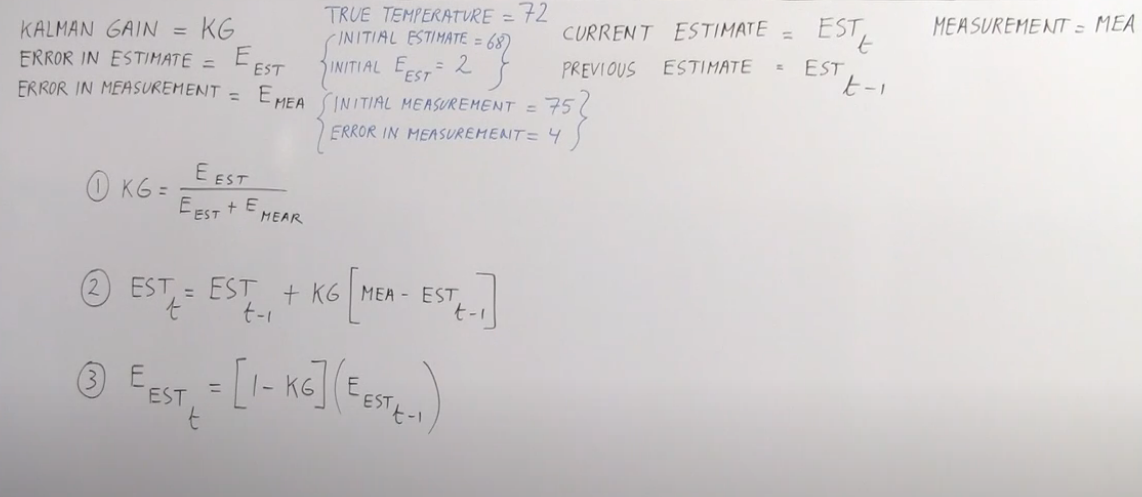 KALMAN GAIN = KG
ERROR IN ESTIMATE = E EST
ERROR IN MEASUREMENT = E MEA
TRUE TEMPERATURE = 72
{INITIAL ESTIMATE = 68}
{INITIAL E EST = 2}
{INITIAL MEASUREMENT = 75}
{ERROR IN MEASUREMENT = 4}
CURRENT ESTIMATE = EST t
PREVIOUS ESTIMATE = EST t-1
MEASUREMENT = MEA
① KG = E EST / E EST + E MEAR
② EST t = EST t-1 + KG [MEA - EST t-1]
③ E EST t = [1 - KG] (E EST t-1)